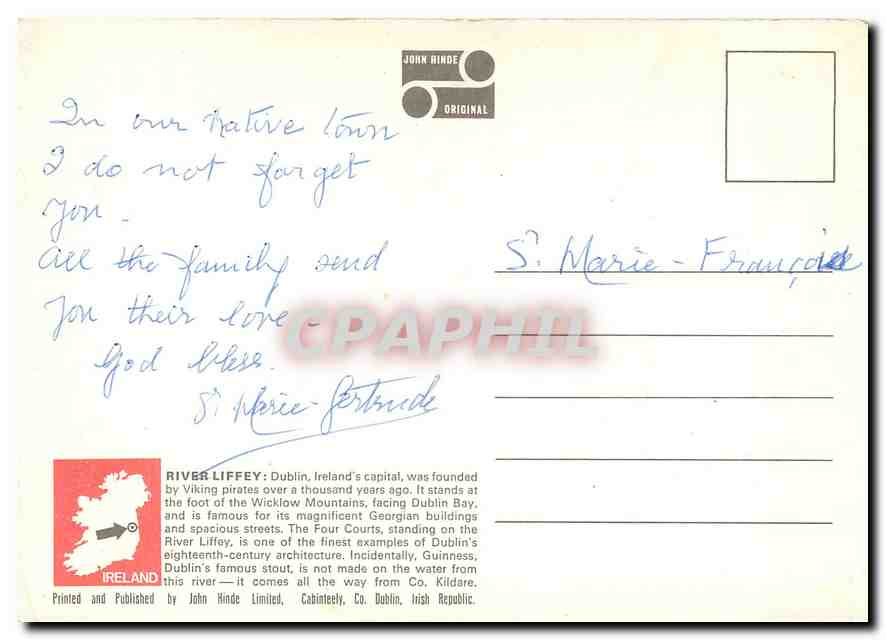 JOHN HINDE
ORIGINAL
In our native town
I do not forget
you -
all the family send
you their love -
God bless.
Sr Marie-Gertrude
Sr Marie - Françoise
CPAPHIL
RIVER LIFFEY: Dublin, Ireland's capital, was founded
by Viking pirates over a thousand years ago. It stands at
the foot of the Wicklow Mountains, facing Dublin Bay,
and is famous for its magnificent Georgian buildings
and spacious streets. The Four Courts, standing on the
River Liffey, is one of the finest examples of Dublin's
eighteenth-century architecture. Incidentally, Guinness,
Dublin's famous stout, is not made on the water from
this river — it comes all the way from Co. Kildare.
IRELAND
Printed and Published by John Hinde Limited, Cabinteely, Co. Dublin, Irish Republic.